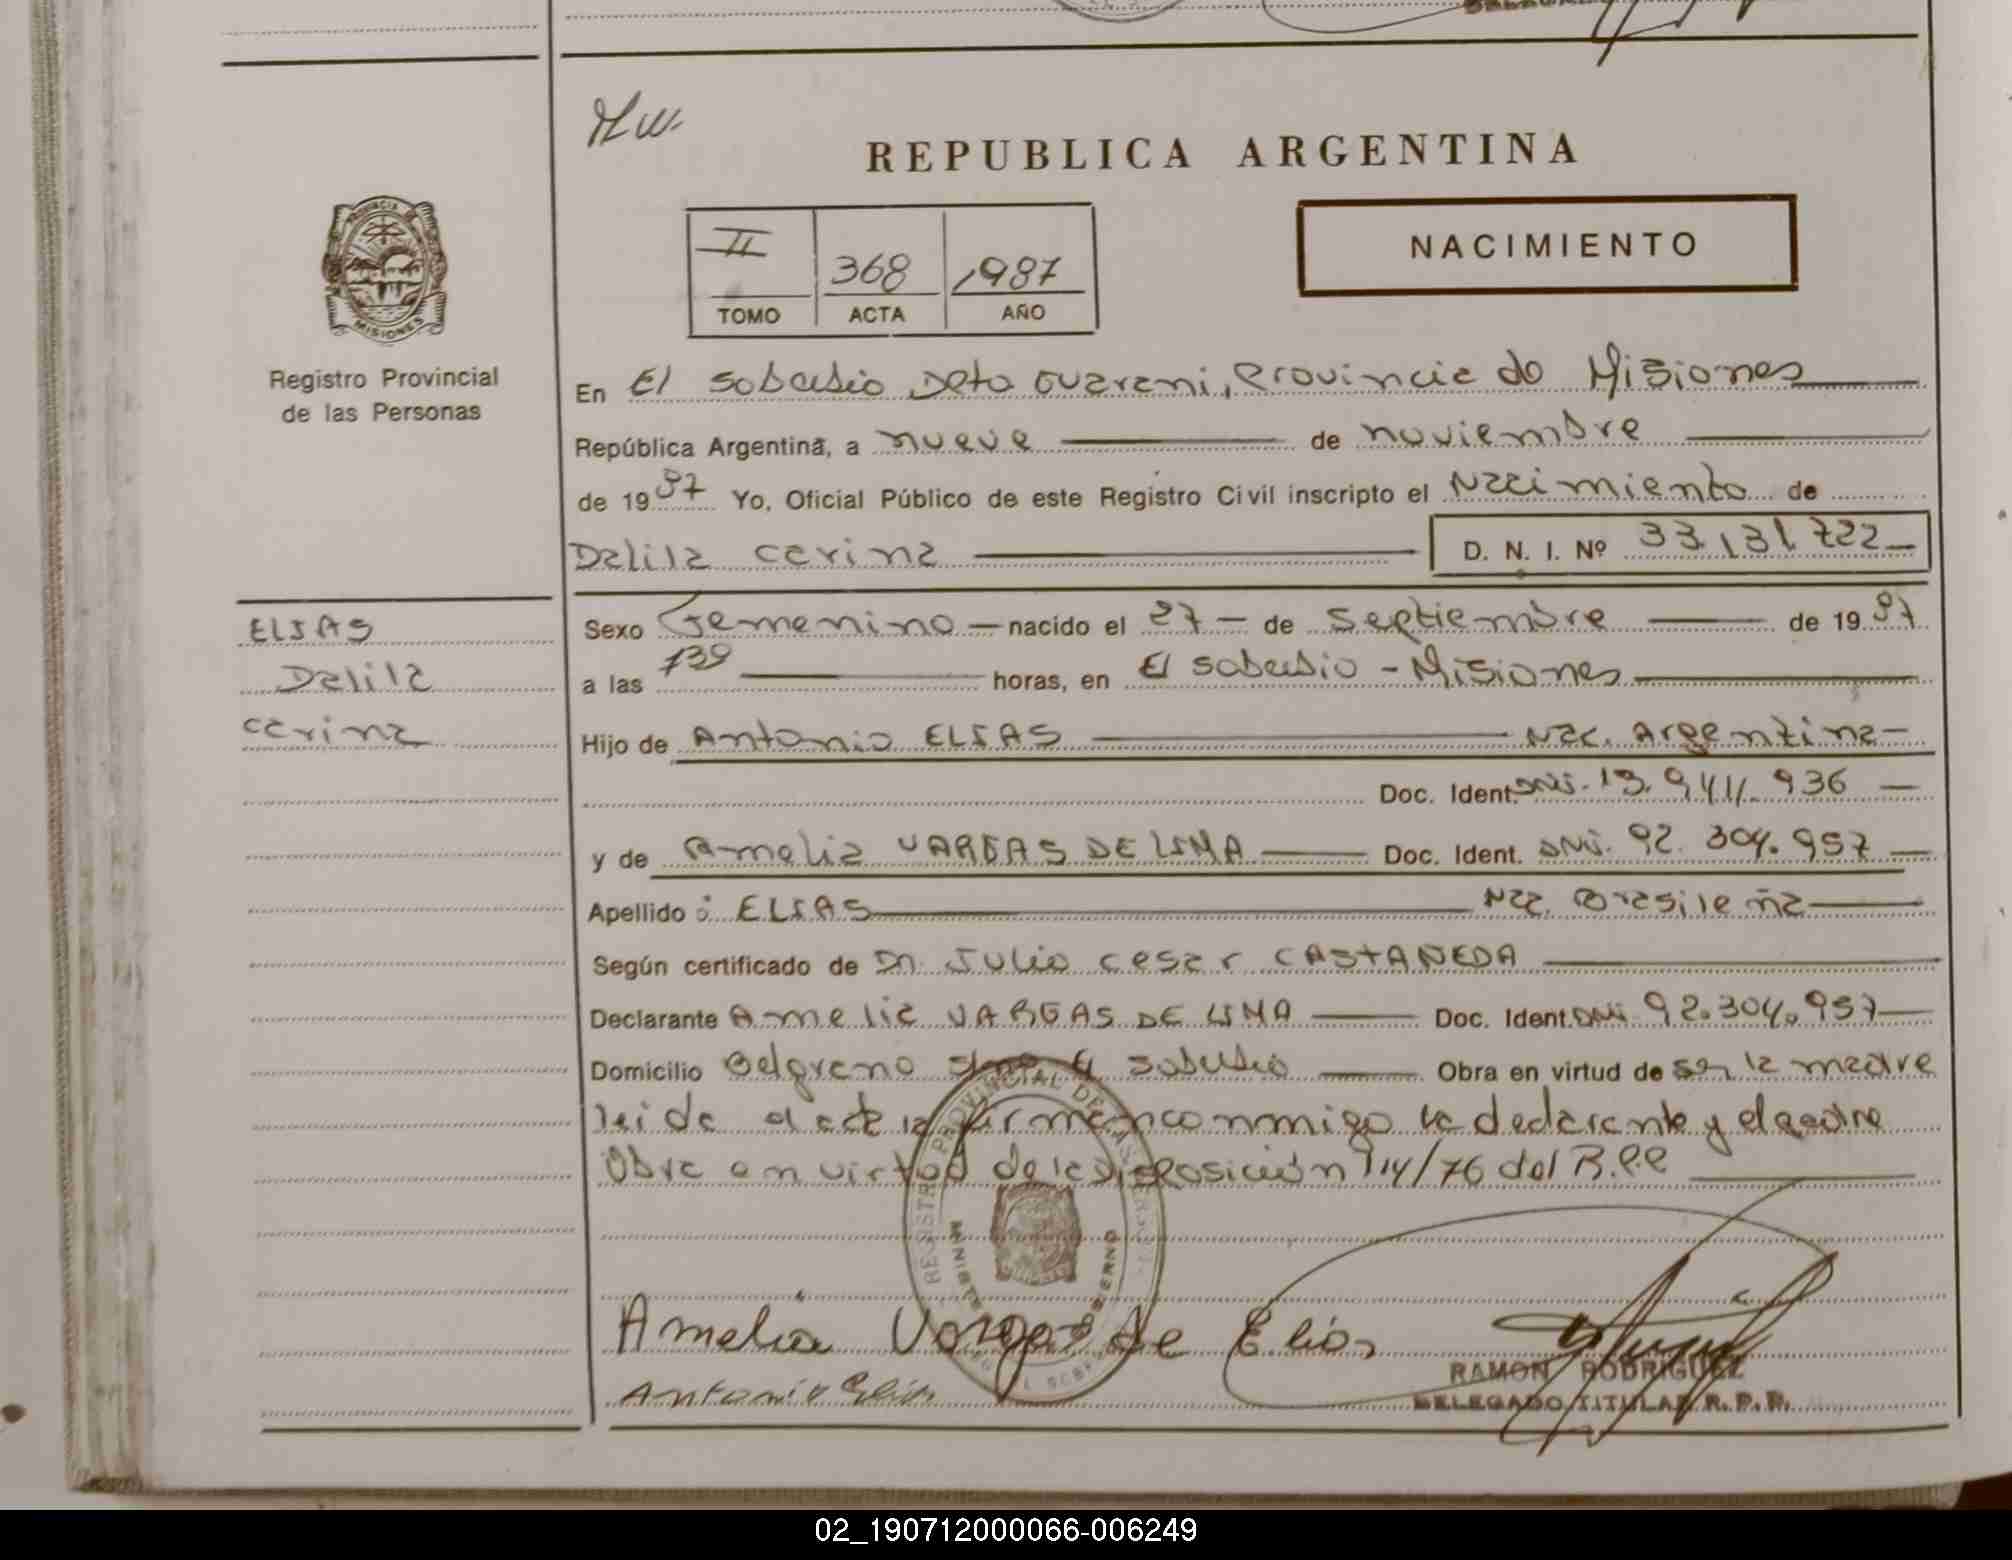 REPUBLICA ARGENTINA
PROVINCIA DE
MISIONES
Registro Provincial
de las Personas
II 368 1987
TOMO ACTA AÑO
NACIMIENTO
En El Soberbio Dpto Guarani, Provincia de Misiones
República Argentina, a nueve de noviembre
de 1987 Yo, Oficial Público de este Registro Civil inscripto el Nacimiento de
Dalila Carina D. N. I. Nº 33.131.722
ELIAS
Dalila
Carina
Sexo Femenino nacido el 27 de Septiembre de 1987
a las 739 horas, en El Soberbio - Misiones
Hijo de Antonio ELIAS Nac. Argentina
Doc. Ident. DNI. 13.941.936
y de Amelia VARGAS DE LIMA Doc. Ident. DNI. 92.304.957
Apellido: ELIAS Nac. Brasileña
Según certificado de Dr. Julio Cesar CASTAÑEDA
Declarante Amelia VARGAS DE LIMA Doc. Ident. DNI 92.304.957
Domicilio Belgrano s/nº El Soberbio Obra en virtud de ser la madre
leida el acta la firman conmigo la declarante y el padre
Obra en virtud de la disposición 114/76 del R.P.P
REGISTRO PROVINCIAL DE LAS PERSONAS
MINISTERIO GOBIERNO
Amelia Vargas de Elias
Antonio Elias
RAMON RODRIGUEZ
DELEGADO TITULAR R. P. P.
02_190712000066-006249